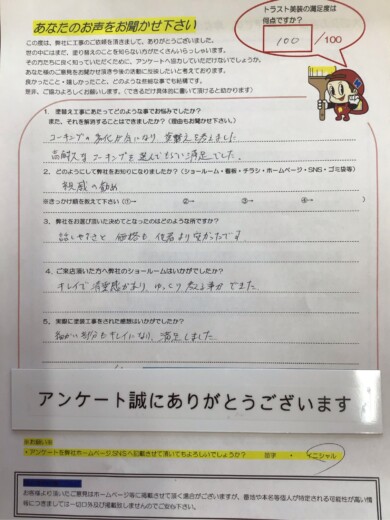 あなたのお声をお聞かせ下さい
トラスト美装の満足度は
何点ですか?
100 /100
この度は、弊社に工事のご依頼を頂きまして、ありがとうございました。
世の中にはまだ、塗り替えのことを知らない方がたくさんいらっしゃいます。
その方たちに良く知っていただくために、アンケートへ協力していただけないでしょうか。
あなた様のご意見をお聞かせ頂き今後の活動に反映したいと考えております。
良かったこと・嬉しかったこと、どのような些細な事でも結構です。
是非、ご協力よろしくお願いします。(できるだけ具体的に書いて頂けると助かります)
1. 塗替え工事にあたってどのような事でお悩みでしたか?
また、それを解消することはできましたか?(理由もお聞かせ下さい。)
コーキングの劣化が気になり、塗替えを考えました
高耐久なコーキングを選んでもらい満足でした。
2. どのようにして弊社をお知りになりましたか?(ショールーム・看板・チラシ・ホームページ・SNS・ゴミ袋等)
親戚の勧め
※きっかけ順を教えて下さい(①→ ②→ ③→ ④→ )
3. 弊社をお選び頂いた決めてとなったのはどのような所ですか?
話しやすさと価格も他者より安かったです。
4. ご来店頂いた方へ弊社のショールームはいかがでしたか?
キレイで清潔感があり、ゆっくり考える事ができました。
5. 実際に塗装工事をされた感想はいかがでしたか?
細かい部分もキレイになり、満足しました。
アンケート誠にありがとうございます
※お願い※
・アンケートを弊社ホームページ、SNSへ記載させて頂いてもよろしいでしょうか? 苗字 ・ イニシャル
お客様より頂いたご意見はホームページ等に掲載させて頂く場合がございますが、番地や本名等個人が特定される可能性が高い情
報につきましては一切口外及び掲載致しませんのでご安心下さい。